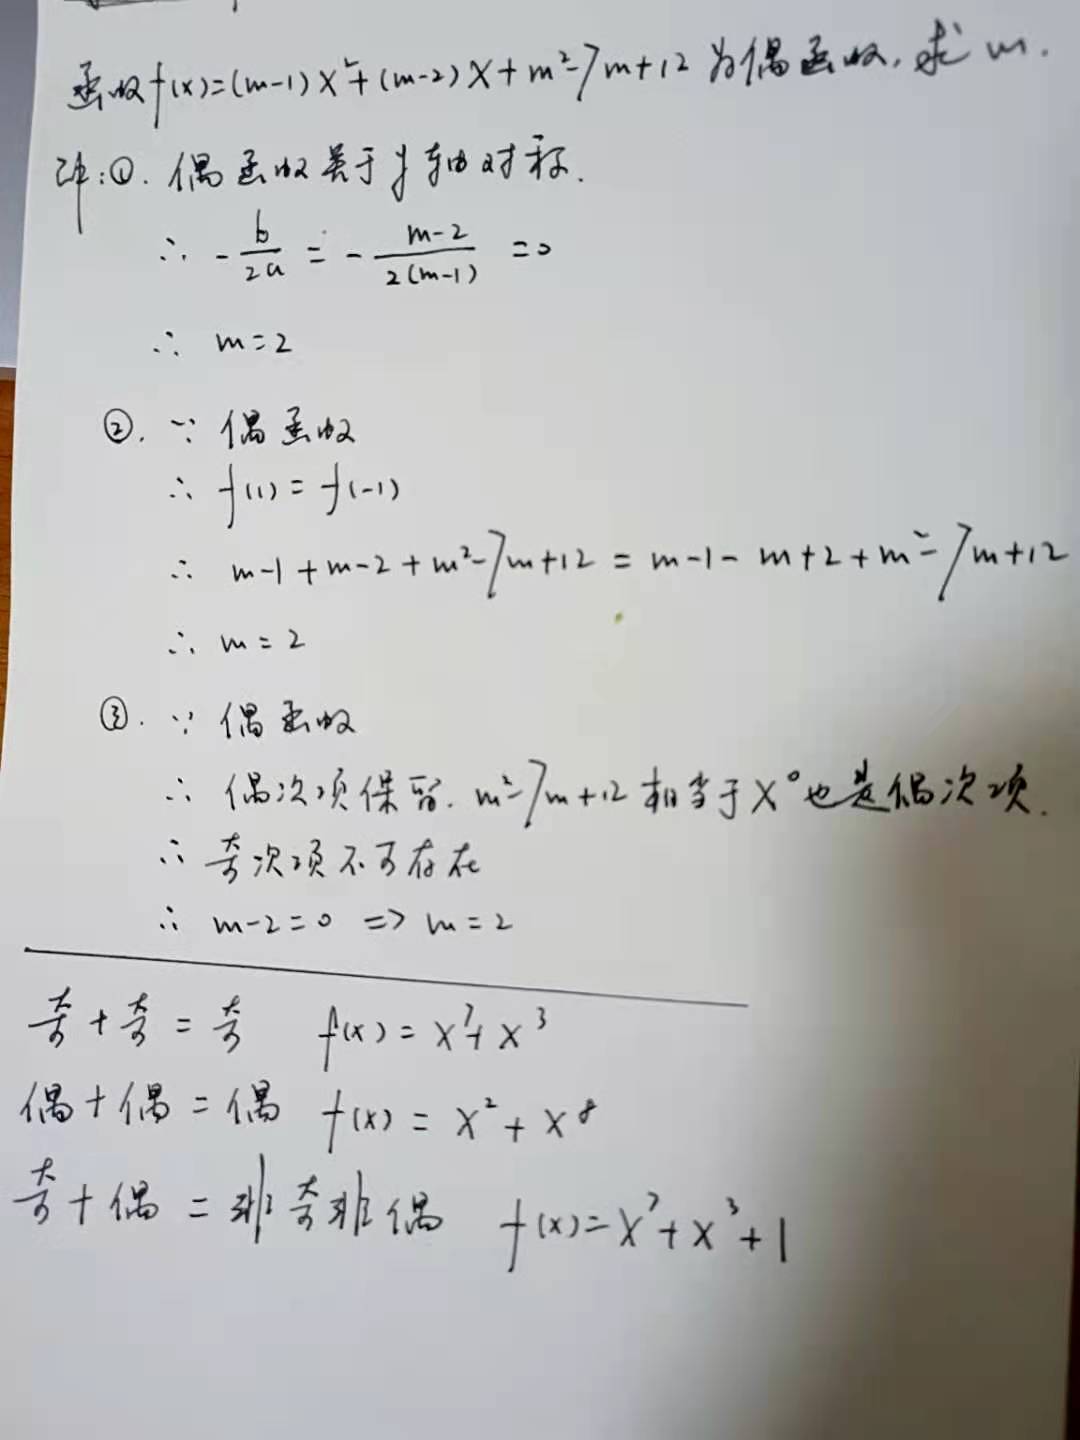 函数f(x)=(m-1)x²+(m-2)x+m²-7m+12为偶函数,求m.
解:①.偶函数关于y轴对称.
∴ -b/2a = -(m-2)/2(m-1) =0
∴ m=2
②. ∵ 偶函数
∴ f(1)=f(-1)
∴ m-1+m-2+m²-7m+12=m-1-m+2+m²-7m+12
∴ m=2
③. ∵ 偶函数
∴ 偶次项保留. m²-7m+12相当于x⁰也是偶次项.
∴ 奇次项不可存在
∴ m-2=0 => m=2
奇+奇=奇 f(x)=x⁷+x³
偶+偶=偶 f(x)=x²+x⁸
奇+偶=非奇非偶 f(x)=x⁷+x³+1